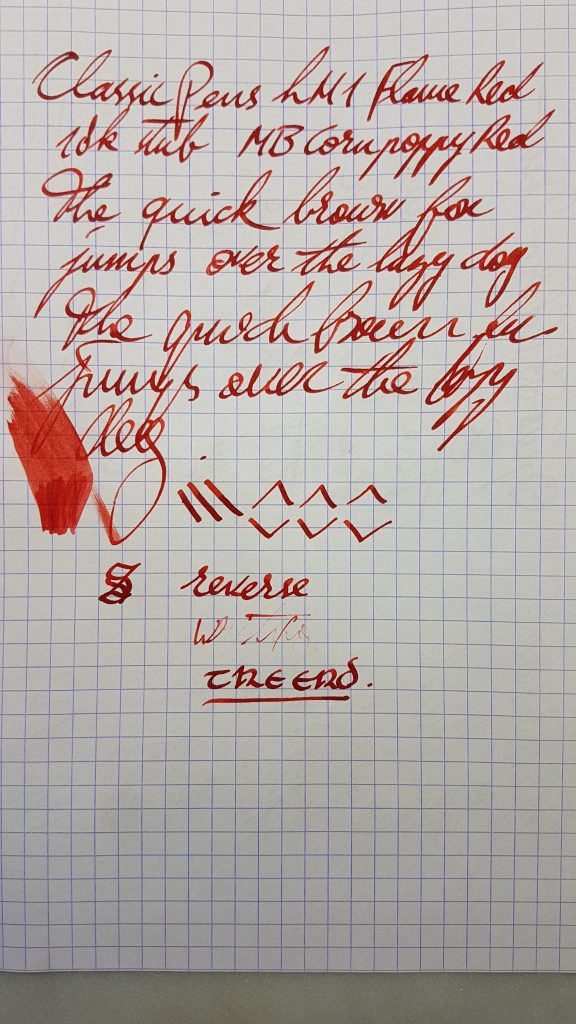 Classic Pens LM1 Flame Red
18k stub MB Corn poppy Red
The quick brown fox
jumps over the lazy dog
The quick brown fox
jumps over the lazy
dog.
reverse
THE END.